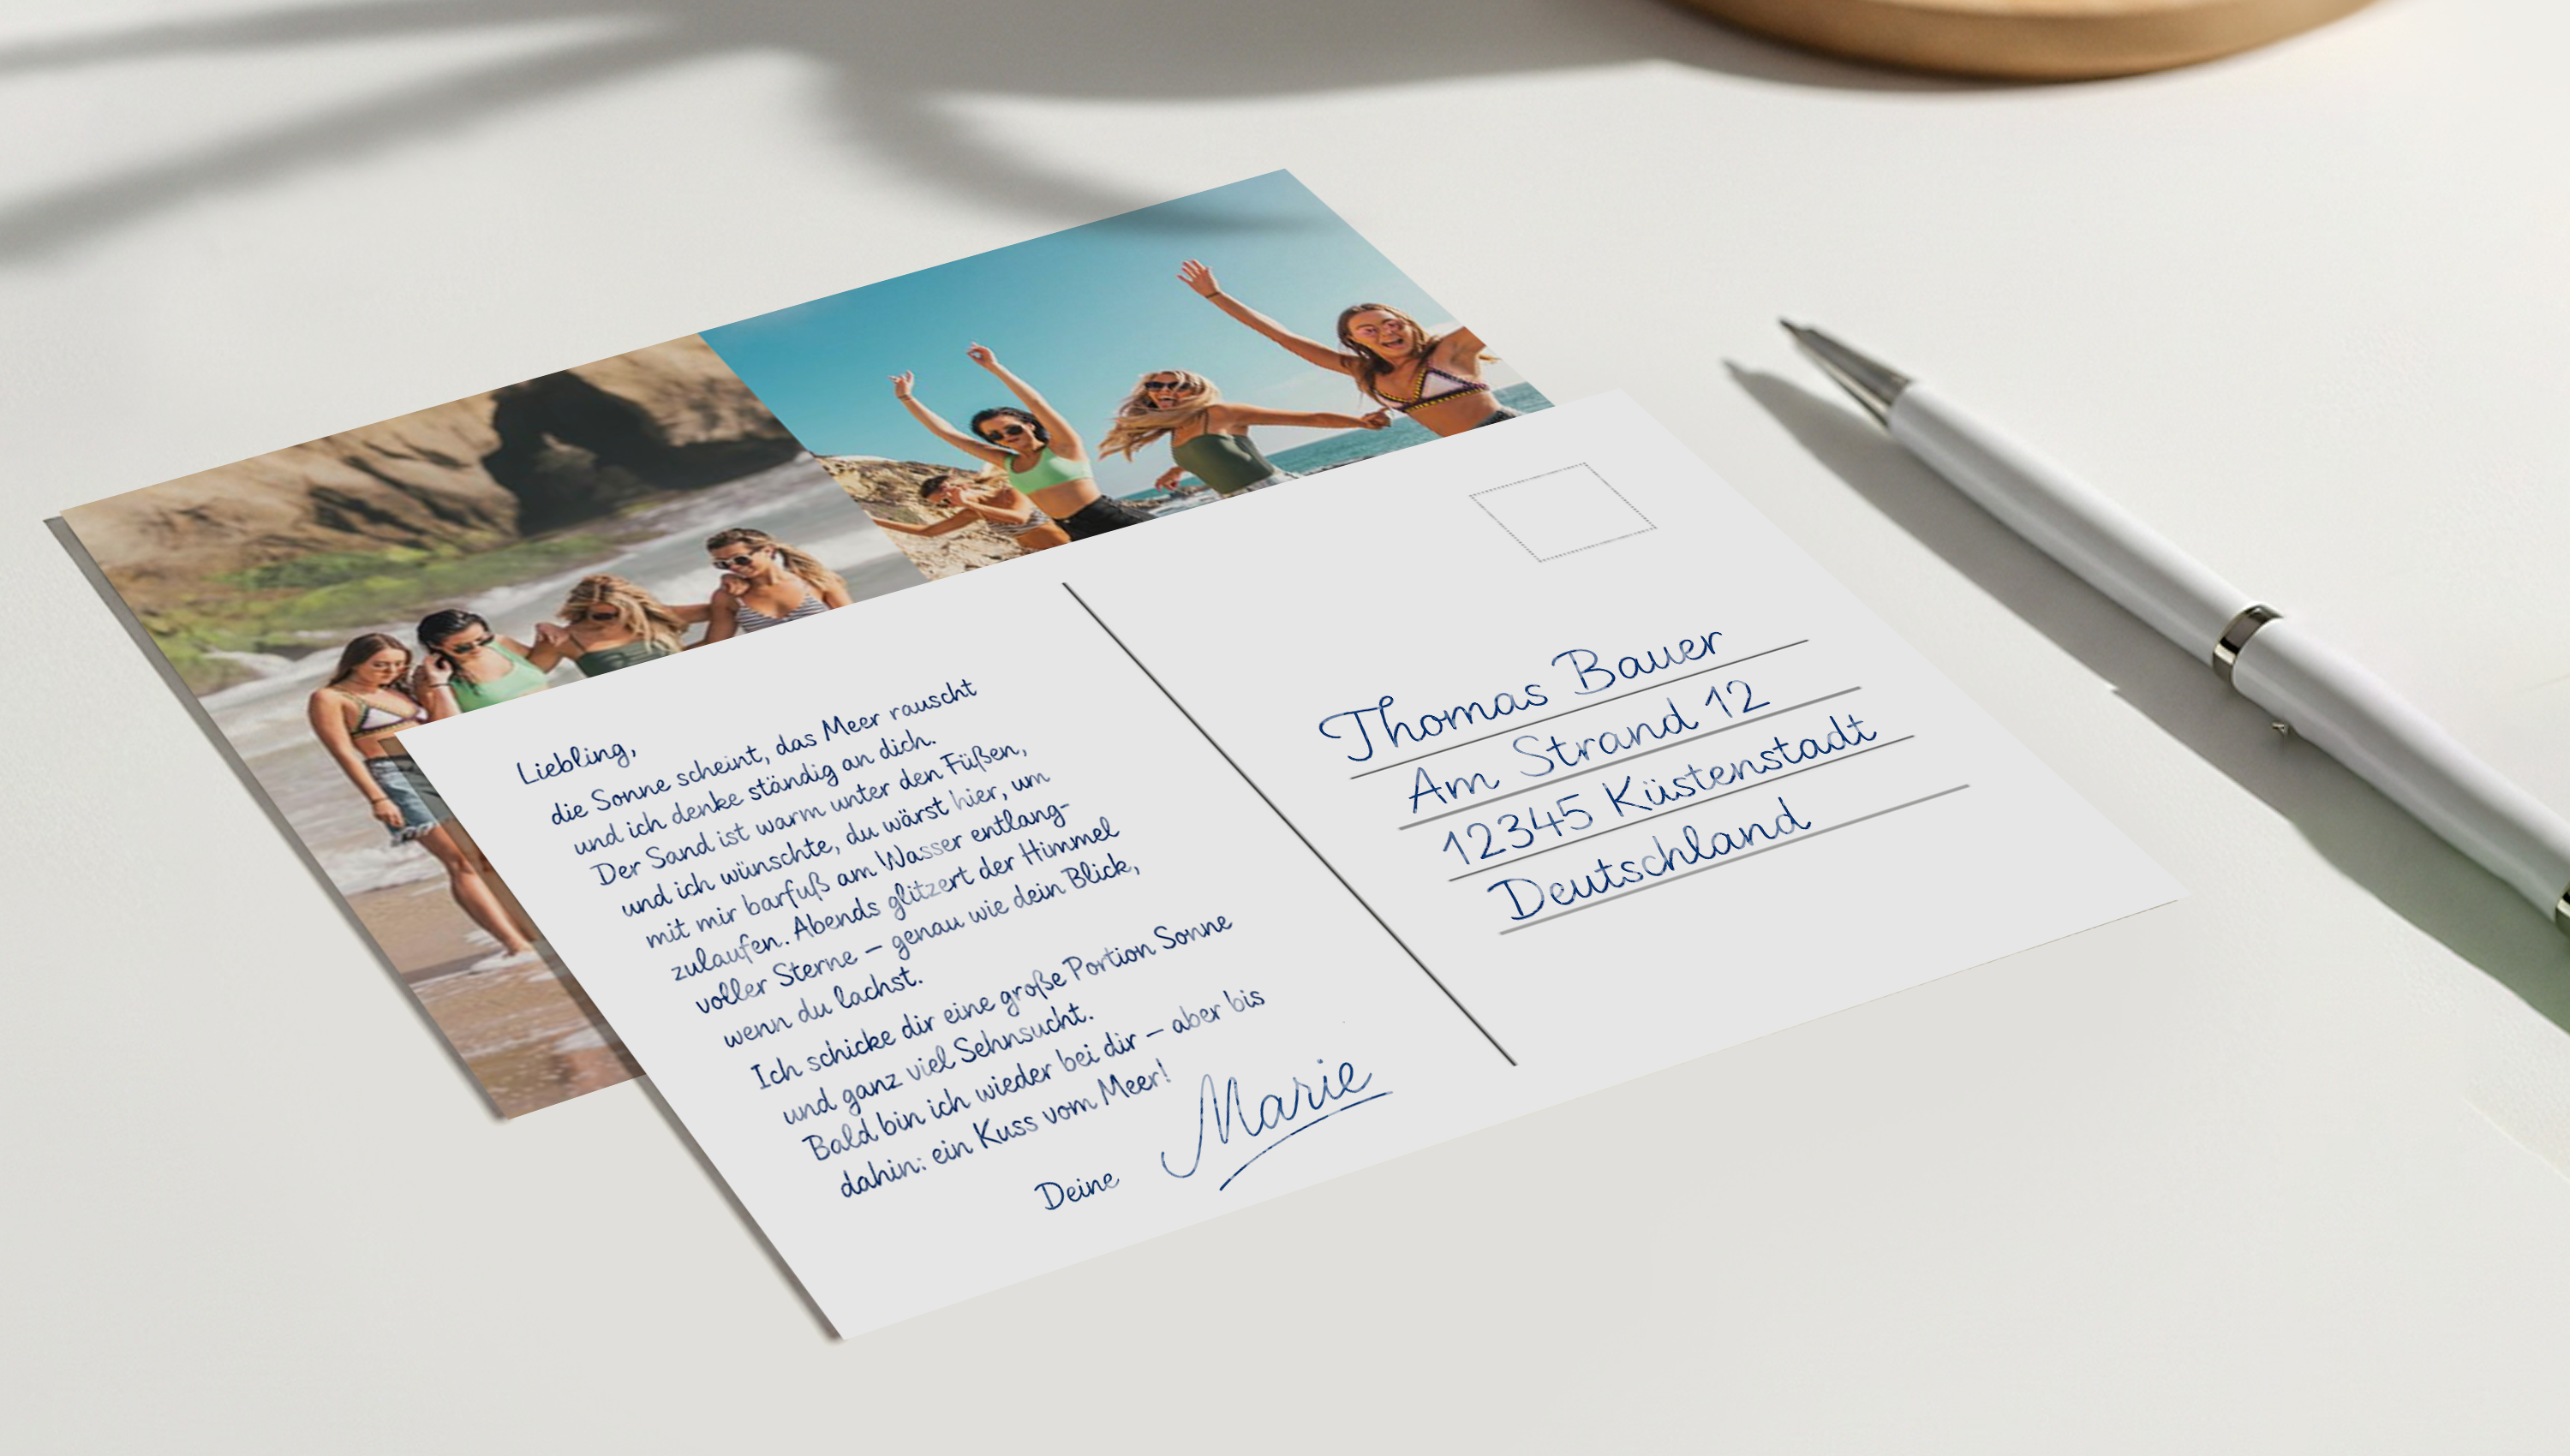 Liebling,
die Sonne scheint, das Meer rauscht
und ich denke ständig an dich.
Der Sand ist warm unter den Füßen,
und ich wünschte, du wärst hier, um
mit mir barfuß am Wasser entlang-
zulaufen. Abends glitzert der Himmel
voller Sterne – genau wie dein Blick,
wenn du lachst.
Ich schicke dir eine große Portion Sonne
und ganz viel Sehnsucht.
Bald bin ich wieder bei dir – aber bis
dahin: ein Kuss vom Meer!
Deine Marie
Thomas Bauer
Am Strand 12
12345 Küstenstadt
Deutschland